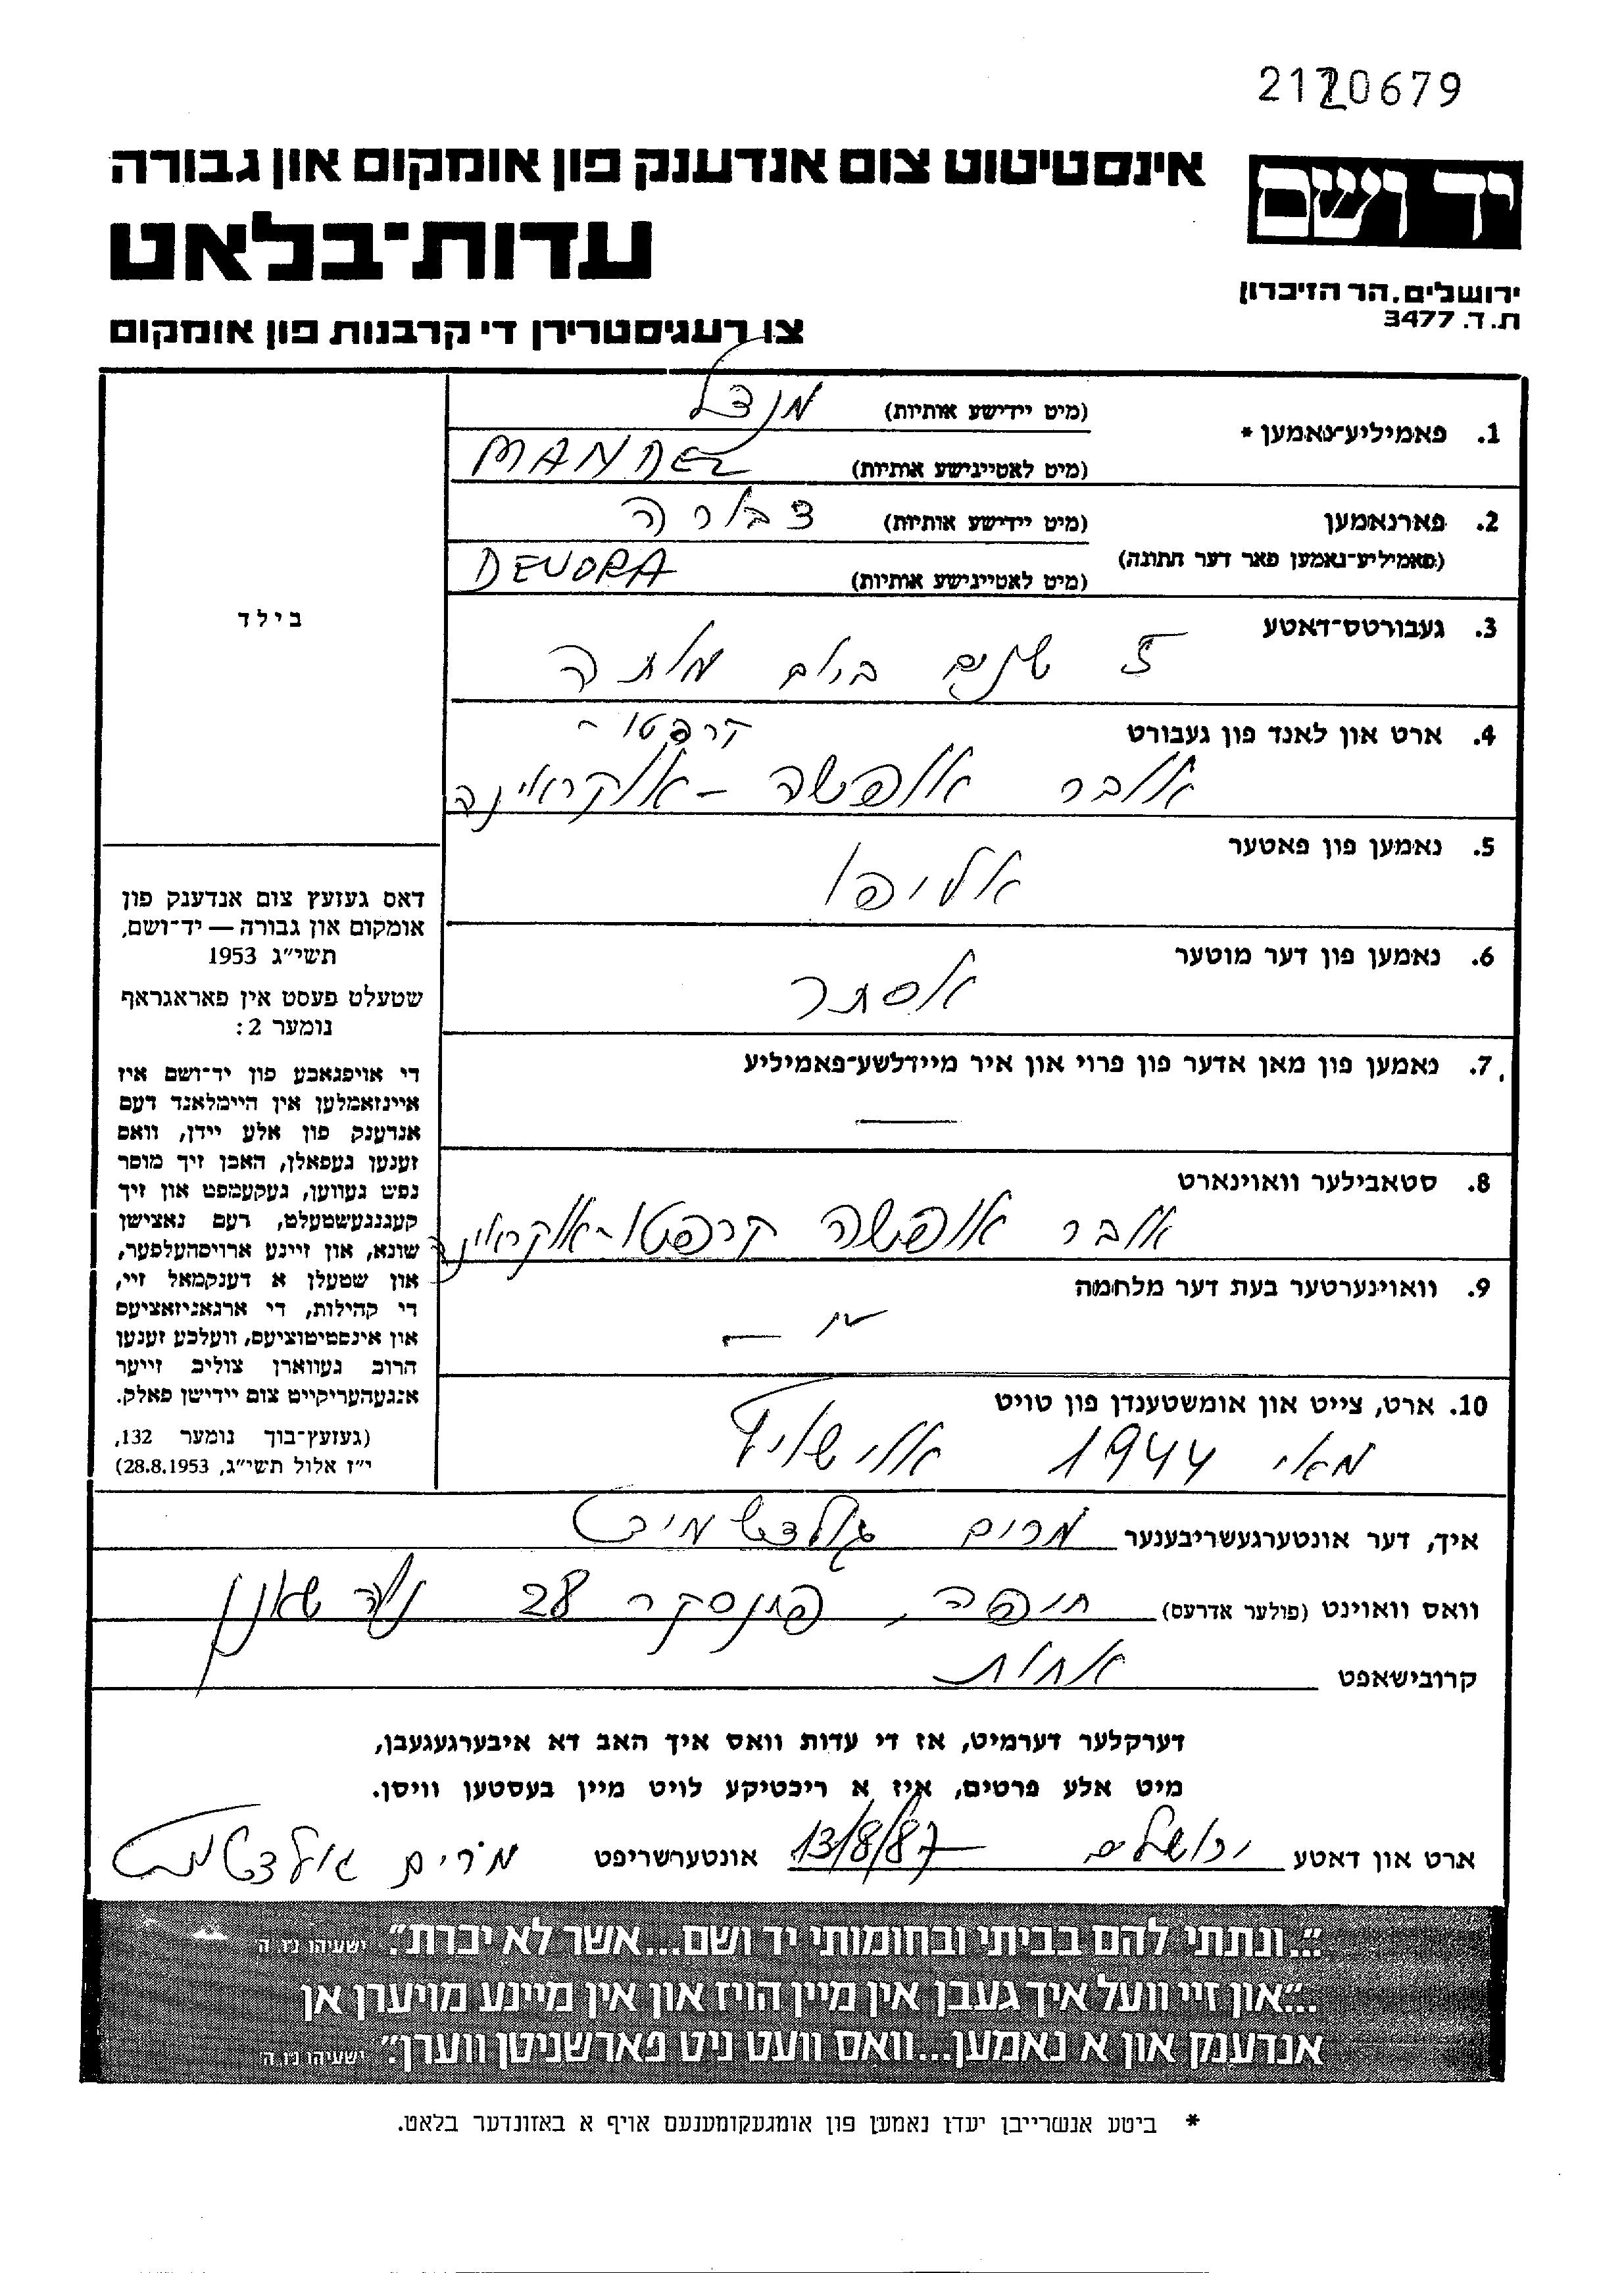 2120679
יד ושם
אינסטיטוט צום אנדענק פון אומקום און גבורה
עדות־בלאט
צו רעגיסטרירן די קרבנות פון אומקום
ירושלים, הר הזיכרון
ת. ד. 3477
1. פאמיליע־נאמען *
(מיט יידישע אותיות) מנדל
(מיט לאטיינישע אותיות) MANDEL
2. פארנאמען
(פאמיליע־נאמען פאר דער חתונה)
(מיט יידישע אותיות) דבורה
(מיט לאטיינישע אותיות) DEVORA
3. געבורטס־דאטע
5 שנים ביום מותה
4. ארט און לאנד פון געבורט
קרפטו -
אובר אופשה - אוקראינה
5. נאמען פון פאטער
אליפו
6. נאמען פון דער מוטער
אסתר
7. נאמען פון מאן אדער פון פרוי און איר מיידלשע־פאמיליע
—
8. סטאבילער וואוינארט
אובר אופשה קרפטו-אוקראינה
9. וואוינערטער בעת דער מלחמה
10. ארט, צייט און אומשטענדן פון טויט
מאי 1944 אושויץ
בילד
דאס געזעץ צום אנדענק פון
אומקום און גבורה — יד־ושם,
תשי״ג 1953
שטעלט פעסט אין פאראגראף
נומער 2:
די אויפגאבע פון יד־ושם איז
איינזאמלען אין היימלאנד דעם
אנדענק פון אלע יידן, וואס
זענען געפאלן, האבן זיך מוסר
נפש געווען, געקעמפט און זיך
קעגנגעשטעלט, דעם נאצישן
שונא, און זיינע ארויסהעלפער,
און שטעלן א דענקמאל זיי,
די קהילות, די ארגאניזאציעס
און אינסטיטוציעס, וועלכע זענען
הרוב געווארן צוליב זייער
אנגעהעריקייט צום יידישן פאלק.
(געזעץ־בוך נומער 132,
י״ז אלול תשי״ג, 28.8.1953)
איך, דער אונטערגעשריבענער מרים גולדשמידט
וואס וואוינט (פולער אדרעס) חיפה, פינסקר 28 נוה שאנן
קרובישאפט אחות
דערקלער דערמיט, אז די עדות וואס איך האב דא איבערגעגעבן,
מיט אלע פרטים, איז א ריכטיקע לויט מיין בעסטען וויסן.
ארט און דאטע ירושלים 13/8/87 אונטערשריפט מרים גולדשמידט
״...ונתתי להם בביתי ובחומותי יד ושם...אשר לא יכרת״. ישעיהו נ״ו, ה
...״און זיי וועל איך געבן אין מיין הויז און אין מיינע מויערן אן
אנדענק און א נאמען...וואס וועט ניט פארשניטן ווערן״. ישעיהו נ״ו, ה׳
* ביטע אנשרייבן יעדן נאמען פון אומגעקומענעם אויף א באזונדער בלאט.